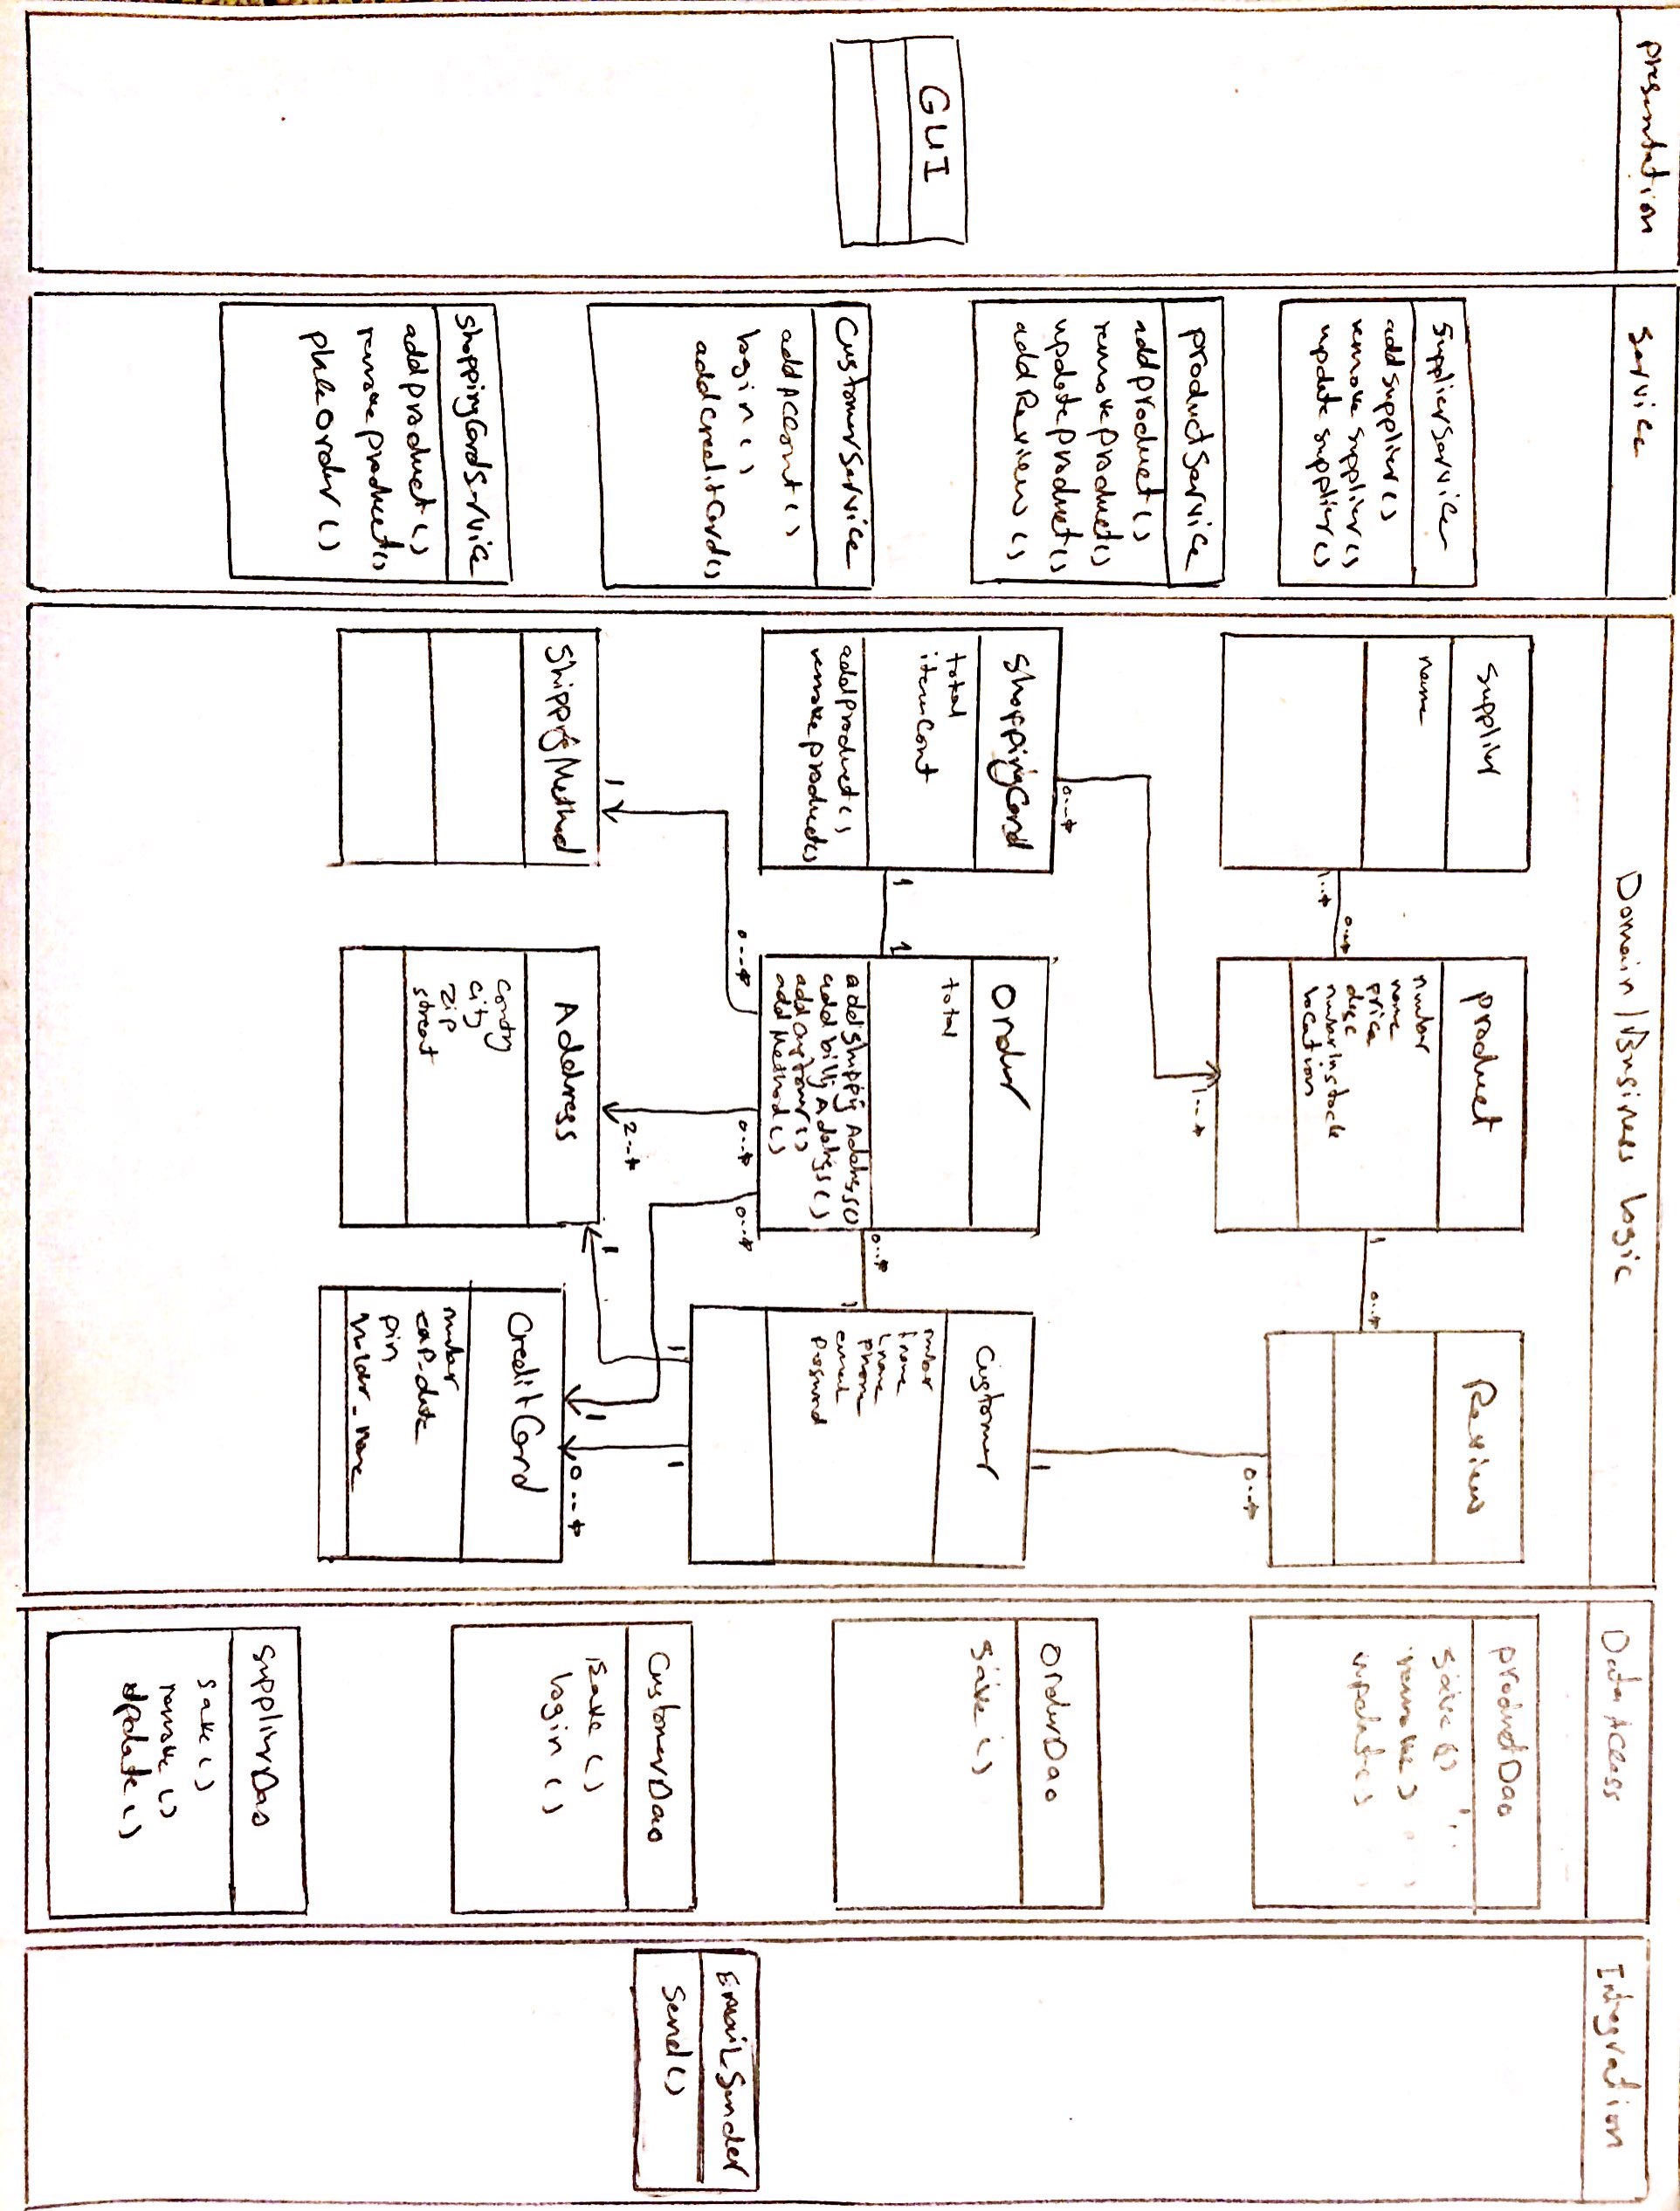 presentation
Service
Domain/Business Logic
Data Access
Integration
GUI
SupplierService
add supplier()
remove supplier()
update supplier()
productService
addproduct()
removeproduct()
updateproduct()
addReview()
CustomerService
addAccount()
login()
addCreditCard()
shoppingCardService
addproduct()
removeproduct()
placeOrder()
supplier
name
1..*
0..*
product
number
name
price
desc
numberInstock
location
1
0..*
Review
0..*
1..*
0..*
shoppingCard
total
itemCont
addproduct()
removeproduct()
1
1
Order
total
add shippig Address()
add billig Address()
addCustomer()
addMethod()
0..*
1
1
Customer
number
fname
Lname
phone
email
password
0..*
0..*
0..*
1
1
1
2..*
1
1
0..*
ShippigMethod
Address
contry
city
zip
street
CreditCard
number
exp_date
pin
holder_name
productDao
save()
remove()
update()
OrderDao
save()
CustomerDao
save()
login()
supplierDao
save()
remove()
update()
EmailSender
send()